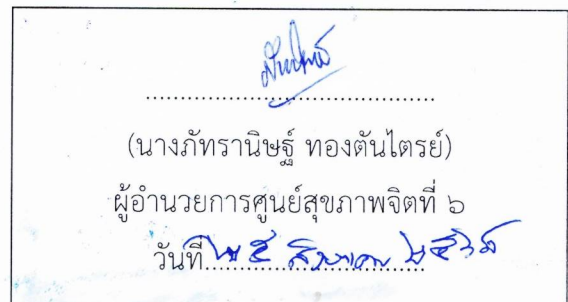 (นางภัทรานิษฐ์ ทองตันไตรย์)
ผู้อำนวยการศูนย์สุขภาพจิตที่ ๖
วันที่ ๒๕ สิงหาคม